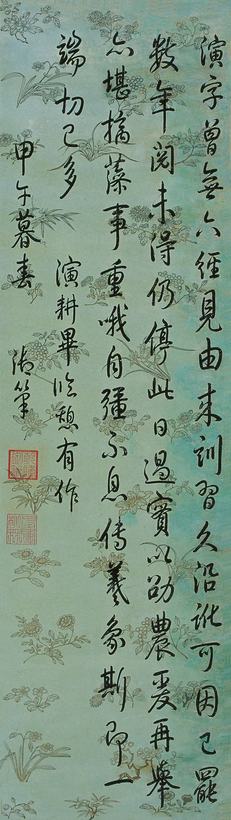 演字曾無六經見由來訓習久沿訛可因已罷
數年閱未得仍停此日過實以劭農爰再舉
亦堪摛藻事重哦自彊不息傳羲象斯即一
端切己多
演耕畢臨憩有作
甲午暮春 御筆